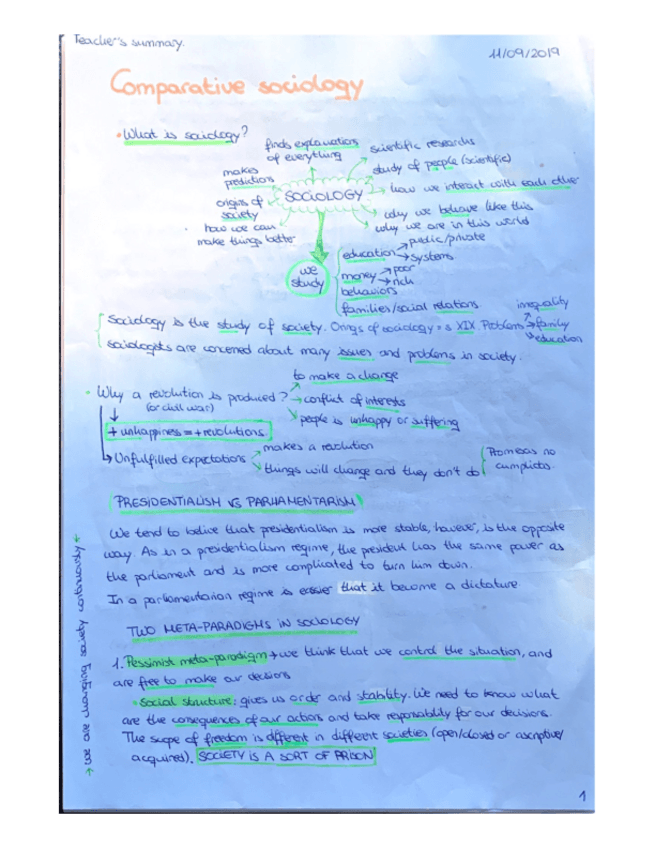 Teacher's summary.
11/09/2019
Comparative sociology
• What is sociology?
finds explanations
of everything
scientific researchs
study of people (scientific)
makes
predictions
SOCIOLOGY
how we interact with each other
origins of
society
why we behave like this
why we are in this world
how we can
make things better
we
study
education → public/private
→ systems
money → poor
→ rich
behaviors
families/social relations.
inequality
Sociology is the study of society. Origs of sociology = s XIX. Problems → family
education
sociologists are concerned about many issues and problems in society.
to make a change
• Why a revolution is produced? → conflict of interests
(or civil war)
people is unhappy or suffering
+ unhappiness = + revolutions.
makes a revolution
Unfulfilled expectations
things will change and they don't do
Promesas no
cumplidas.
PRESIDENTIALISM VS PARLIAMENTARISM
We tend to belive that presidentialism is more stable, however, is the opposite
way. As in a presidentialism regime, the president has the same power as
the parliament and is more complicated to turn him down.
In a parliamentarian regime is easier that it become a dictature.
TWO META-PARADIGMS IN SOCIOLOGY
1. Pessimist meta-paradigm → we think that we control the situation, and
are free to make our decisions
• Social structure: gives us order and stability. We need to know what
are the consequences of our actions and take responsability for our decisions.
The scope of freedom is different in different societies (open/closed or ascriptive/
acquired). SOCIETY IS A SORT OF PRISON
→ we are changing society continuously ←
1